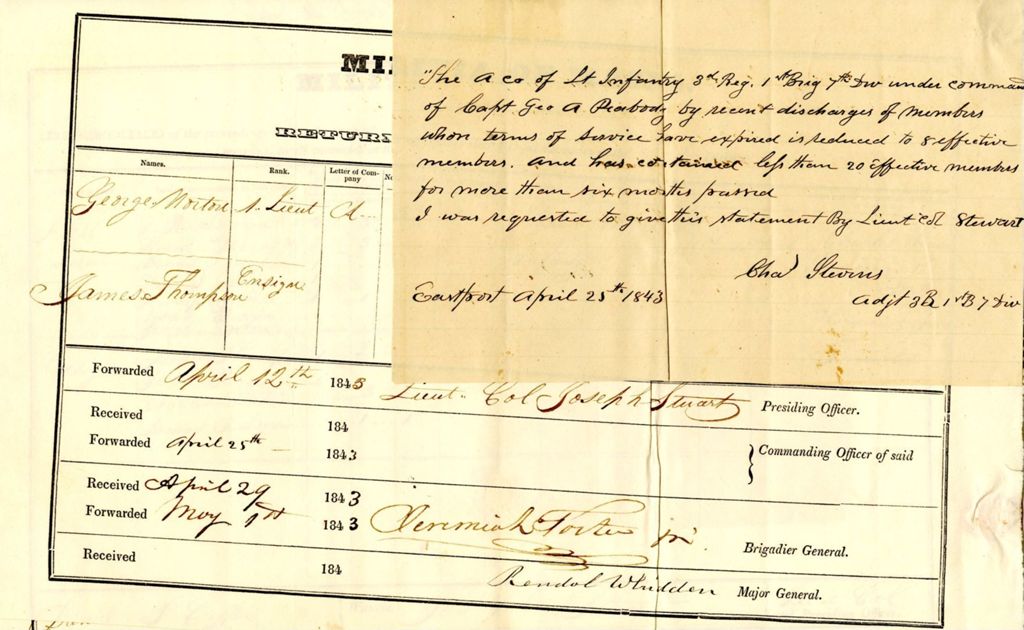 "The A co of Lt Infantry 3d Reg. 1st Brig 7th Div under comman
of Capt Geo A Peabody by recent discharges of members
whom terms of service have expired is reduced to 8 effective
members. And has contained less than 20 Effective members
for more than six months passed
I was requested to give this statement By Lieut Col Stewart
Chas Stevens
Eastport April 25th 1843
Adjt 3R 1st B 7 Div
MI
RETUR
Names. Rank. Letter of Com-pany No
George Morton 1. Lieut A
James Thompson Ensign
Forwarded April 12th 1843 Lieut. Col Joseph Stuart Presiding Officer.
Received 184
Forwarded April 25th 1843 Commanding Officer of said
Received April 29 1843
Forwarded May 1st 1843 Jeremiah Foster jr. Brigadier General.
Received 184 Rendol Whidden Major General.